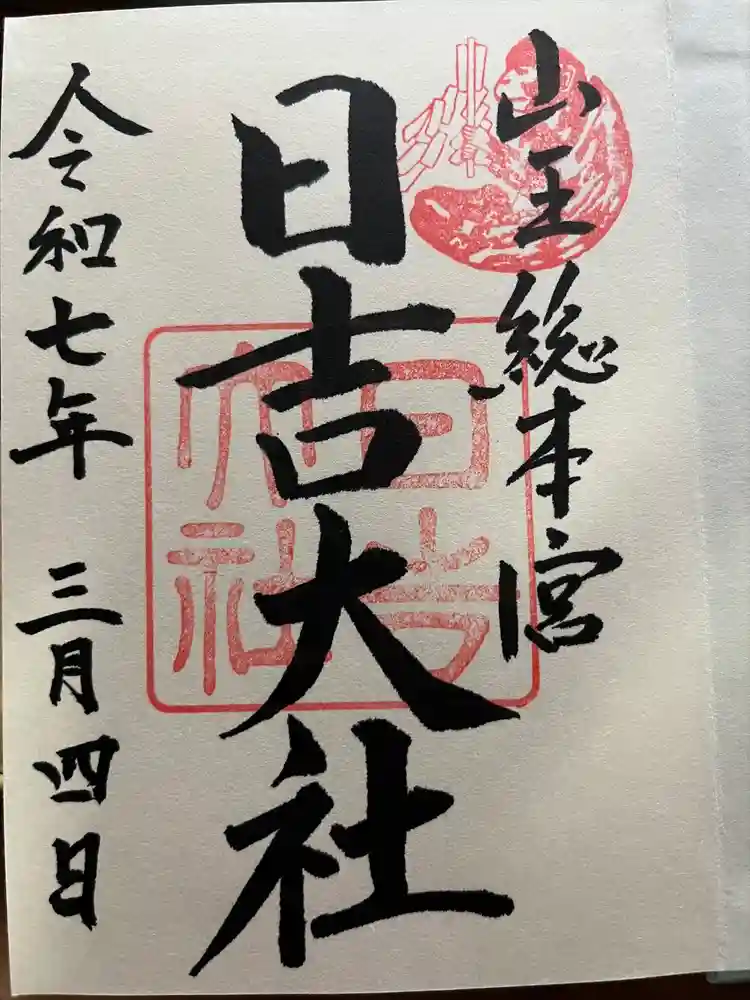 山王総本宮
日吉大社
日吉大社
令和七年 三月四日